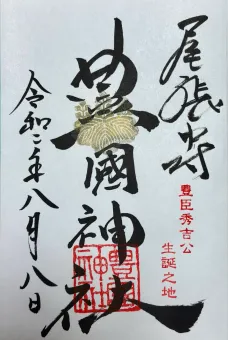 尾張中村
豊臣秀吉公
生誕之地
豊國神社
豊國
神社
令和二年八月八日